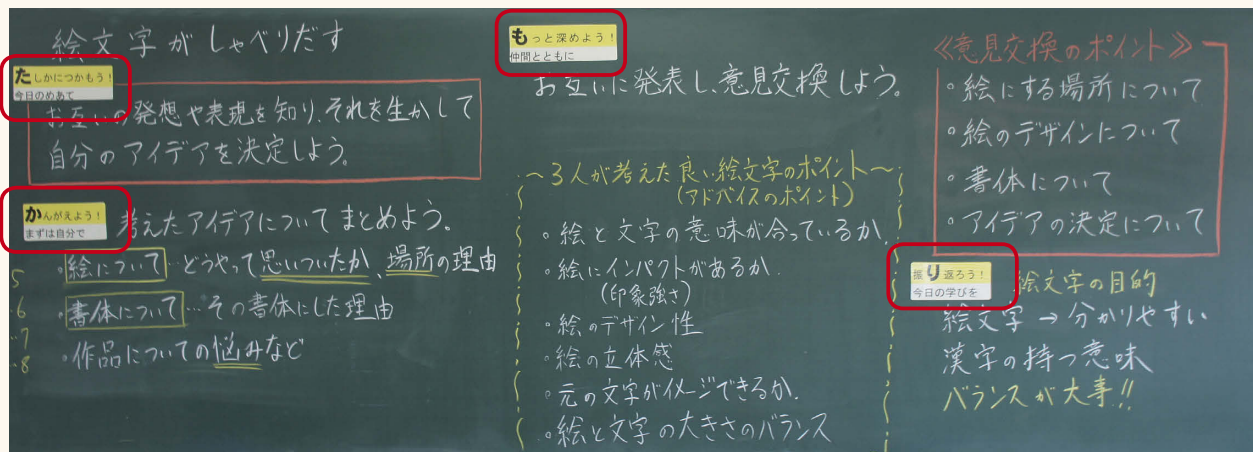 絵文字がしゃべりだす
たしかにつかもう!
今日のめあて
お互いの発想や表現を知り、それを生かして
自分のアイデアを決定しよう。
かんがえよう!
まずは自分で
考えたアイデアについてまとめよう。
・絵について…どうやって思いついたか、場所の理由
・書体について…その書体にした理由
・作品についての悩みなど
5
6
7
8
もっと深めよう!
仲間とともに
お互いに発表し、意見交換しよう。
〜3人が考えた良い絵文字のポイント〜
(アドバイスのポイント)
・絵と文字の意味が合っているか.
・絵にインパクトがあるか.
(印象強さ)
・絵のデザイン性
・絵の立体感
・元の文字がイメージできるか.
・絵と文字の大きさのバランス
《意見交換のポイント》
・絵にする場所について
・絵のデザインについて
・書体について
・アイデアの決定について
振り返ろう!
今日の学びを
絵文字の目的
絵文字→分かりやすい
漢字の持つ意味
バランスが大事!!